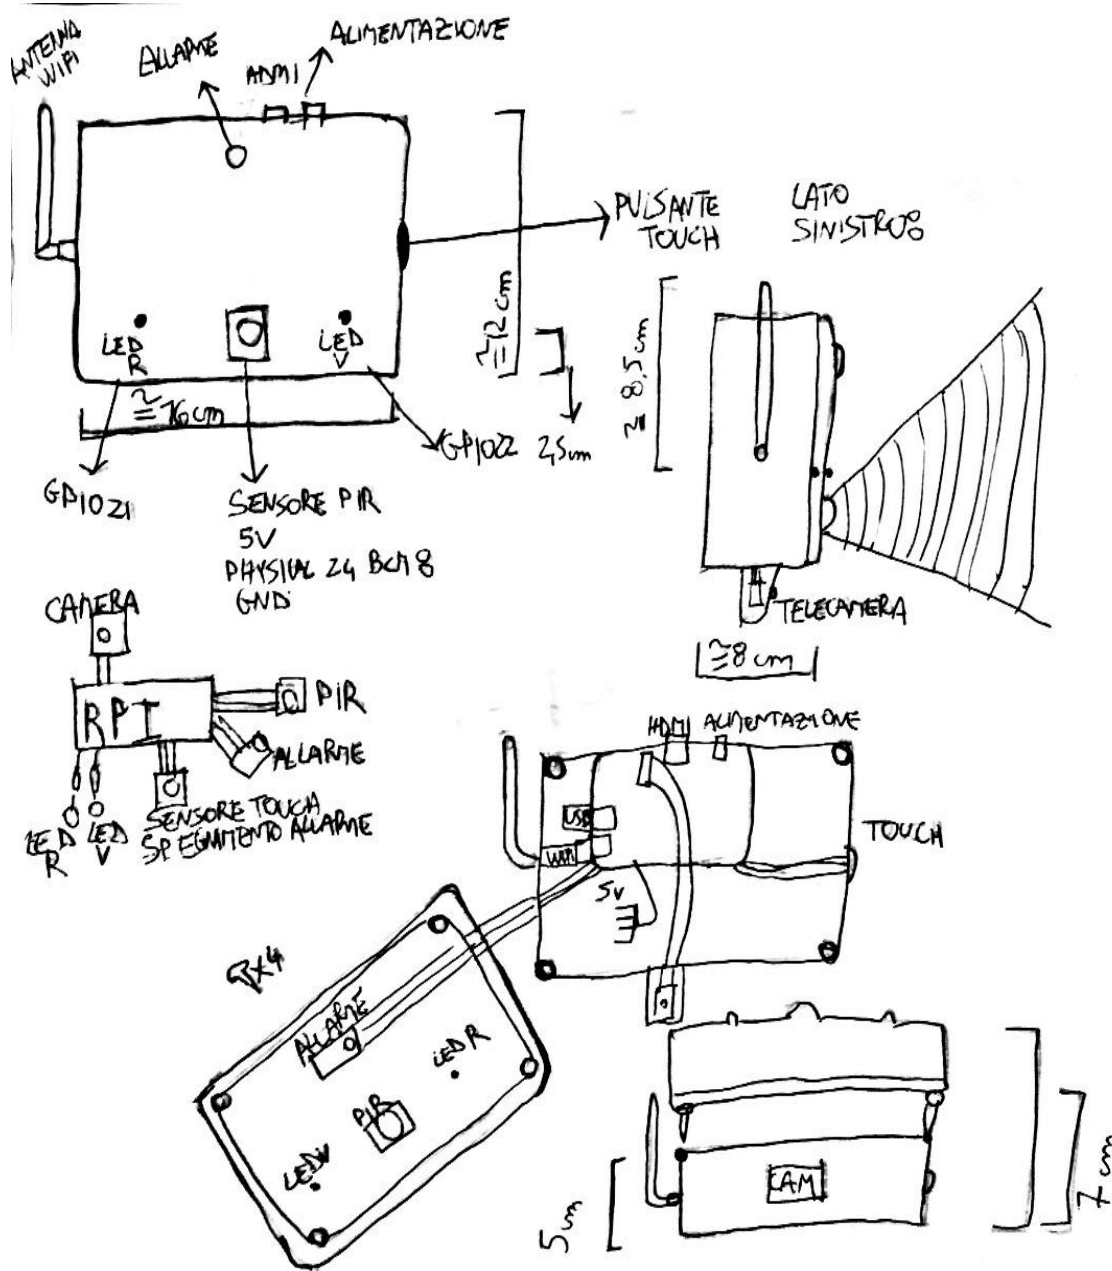 ANTENNA
WIFI
ALLARME
HDMI
ALIMENTAZIONE
PULSANTE
TOUCH
LED
R
LED
V
≅ 16 cm
≅ 12 cm
2,5 cm
GPIO21
GPIO22
SENSORE PIR
5V
PHYSICAL 24 BCM 8
GND
LATO
SINISTRO:
≅ 8,5 cm
TELECAMERA
≅ 8 cm
CAMERA
RPI
PIR
ALLARME
SENSORE TOUCH
SPEGNIMENTO ALLARME
LED
R
LED
V
HDMI
ALIMENTAZIONE
USB
WIFI
5V
TOUCH
x4
ALLARME
LED R
PIR
LED V
CAM
5 cm
7 cm